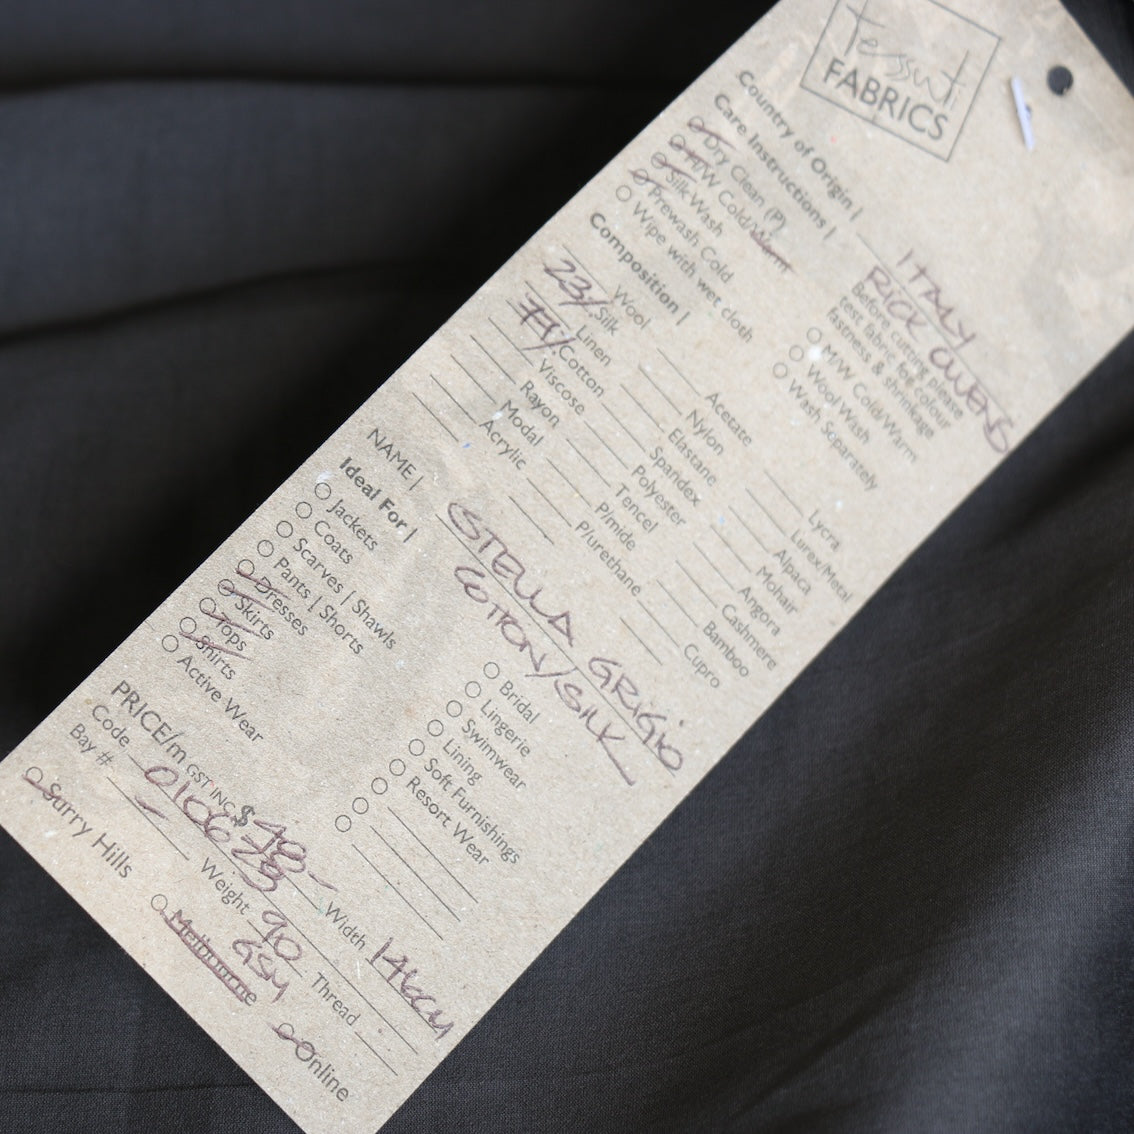 tessuti
FABRICS
Country of Origin | ITALY
Care Instructions | RICK OWENS
Dry Clean (P)
H/W Cold/Warm
Silk Wash
Prewash Cold
Wipe with wet cloth
Before cutting please
test fabric for colour
fastness & shrinkage
M/W Cold/Warm
Wool Wash
Wash Separately
Composition |
Wool
23% Silk
Linen
77% Cotton
Viscose
Rayon
Modal
Acrylic
Acetate
Nylon
Elastane
Spandex
Polyester
Tencel
P/mide
P/urethane
Lycra
Lurex/Metal
Alpaca
Mohair
Angora
Cashmere
Bamboo
Cupro
NAME | STELLA GRIGIO
COTTON/SILK
Ideal For |
Jackets
Coats
Scarves | Shawls
Pants | Shorts
Dresses
Skirts
Tops
Shirts
Active Wear
Bridal
Lingerie
Swimwear
Lining
Soft Furnishings
Resort Wear
PRICE/m GST INC $ 48-
Code 010623
Bay # -
Width 146CM
Weight 90
GSM
Thread
Surry Hills
Melbourne
Online